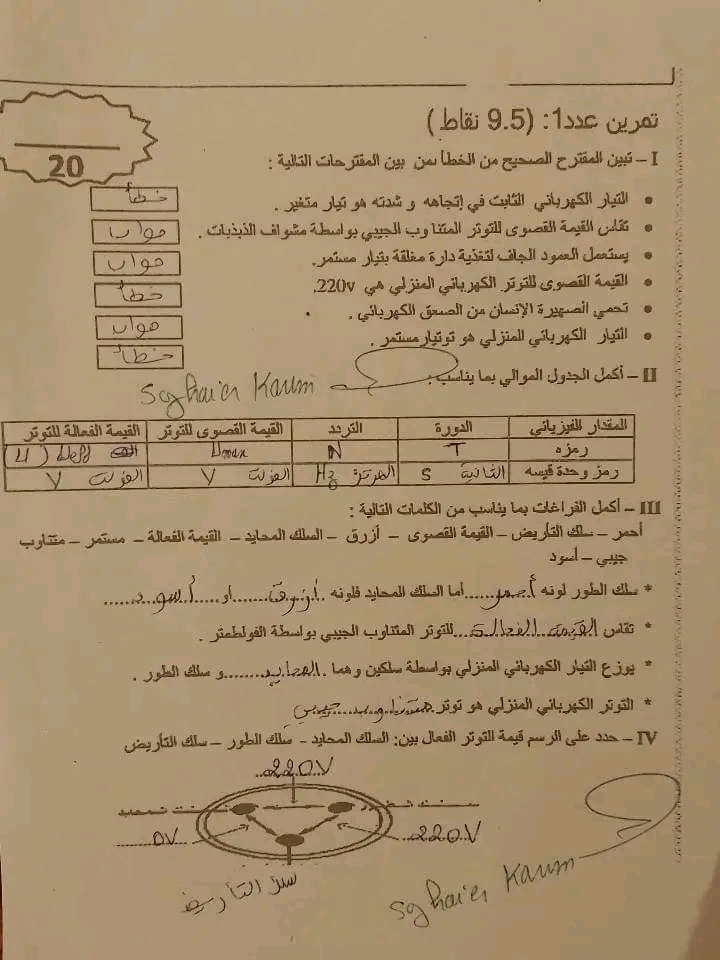 تمرين عدد1: (9.5 نقاط)
20
I – تبين المقترح الصحيح من الخطأ من بين المقترحات التالية :
• التيار الكهربائي الثابت في إتجاهه و شدته هو تيار متغير . خطأ
• تقاس القيمة القصوى للتوتر المتناوب الجيبي بواسطة مشواف الذبذبات . صواب
• يستعمل العمود الجاف لتغذية دارة مغلقة بتيار مستمر. صواب
• القيمة القصوى للتوتر الكهربائي المنزلي هي 220v. خطأ
• تحمي الصهيرة الإنسان من الصعق الكهربائي . صواب
• التيار الكهربائي المنزلي هو توتيار مستمر . خطأ
II – أكمل الجدول الموالي بما يناسب :
Sghaier Karim
المقدار الفيزيائي الدورة التردد القيمة القصوى للتوتر القيمة الفعالة للتوتر
رمزه T N Umax Ueff (U)
رمز وحدة قيسه الثانية S الهرتز Hz الفولت V الفولت V
III – أكمل الفراغات بما يناسب من الكلمات التالية :
أحمر – سلك التأريض – القيمة القصوى – أزرق – السلك المحايد – القيمة الفعالة – مستمر – متناوب
جيبي – أسود
* سلك الطور لونه أحمر أما السلك المحايد فلونه أزرق أو أسود
* تقاس القيمة الفعالة للتوتر المتناوب الجيبي بواسطة الفولطمتر .
* يوزع التيار الكهربائي المنزلي بواسطة سلكين وهما المحايد و سلك الطور .
* التوتر الكهربائي المنزلي هو توتر متناوب جيبي
IV – حدد على الرسم قيمة للتوتر الفعال بين: السلك المحايد - سلك الطور – سلك التأريض
220V
0V 220V
سلك التأريض
Sghaier Karim